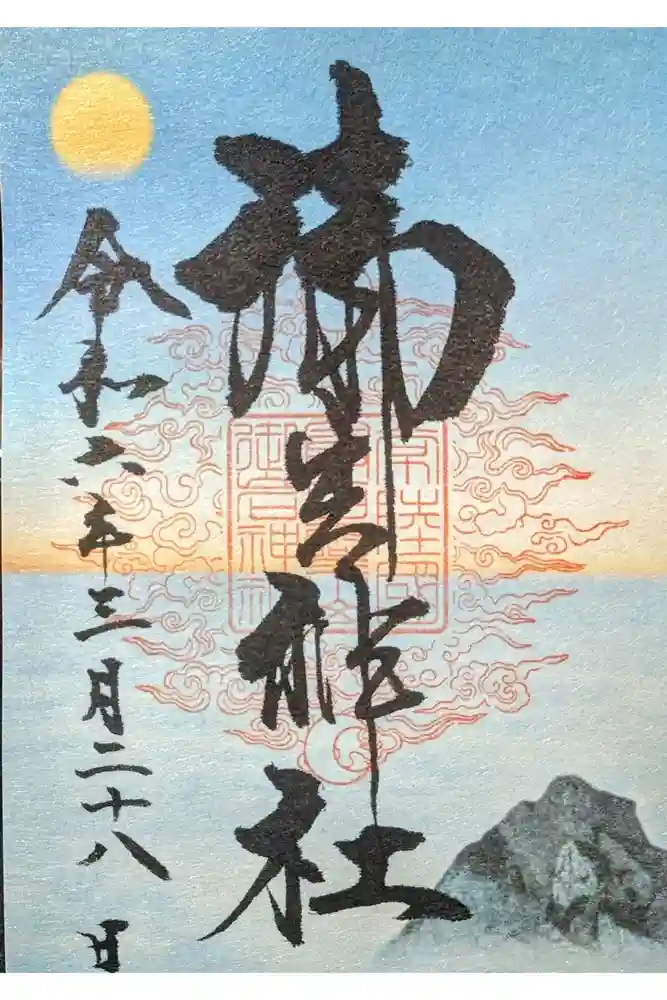 御岩神社
常陸國
御岩神社
令和六年三月二十八日